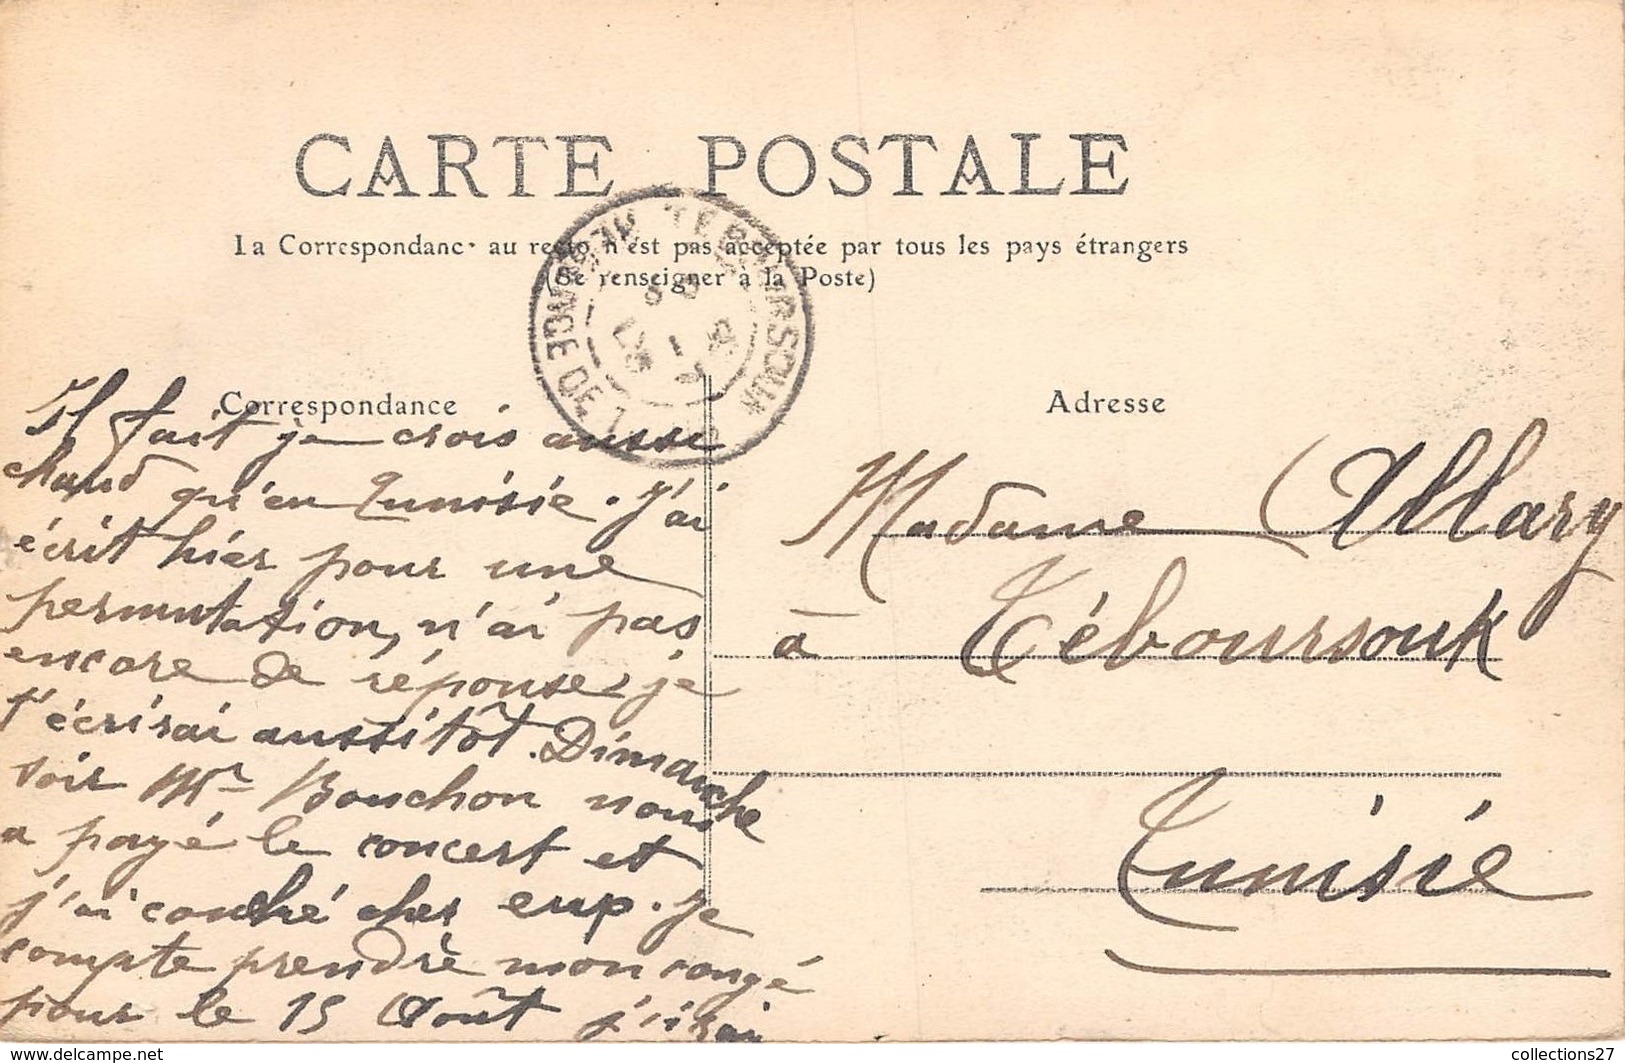 CARTE POSTALE
La Correspondance au recto n'est pas acceptée par tous les pays étrangers
(Se renseigner à la Poste)
TEBOURSOUK
RÉGENCE DE TUNIS
Correspondance
Adresse
Il fait je crois aussi
chaud qu'en Tunisie. J'ai
écrit hier pour une
permutation, n'ai pas
encore de réponse, je
t'écrirai aussitôt. Dimanche
soir Mr Bouchon nous
a payé le concert et
j'ai couché chez eux. Je
compte prendre mon congé
pour le 15 Août j'irai
Madame Allary
à Téboursouk
Tunisie
collections27